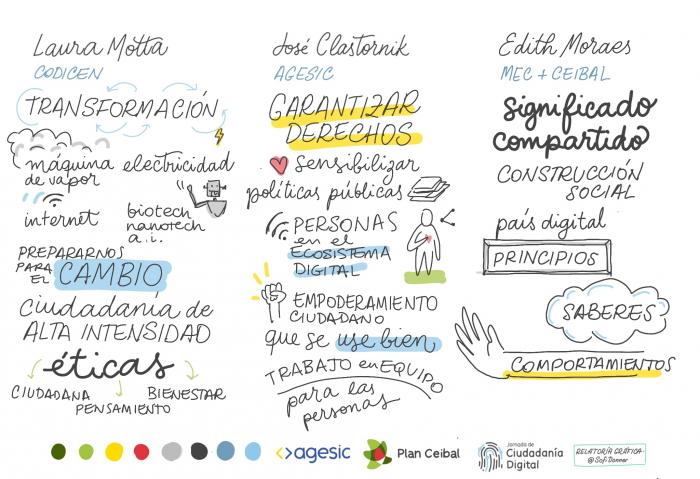 Laura Motta
CODICEN
TRANSFORMACIÓN
máquina
de vapor
electricidad
internet
biotech
nanotech
a.i.
PREPARARNOS
PARA
EL
CAMBIO
Ciudadanía de
ALTA INTENSIDAD
éticas
CIUDADANA
PENSAMIENTO
BIENESTAR
José Clastornik
AGESIC
GARANTIZAR
DERECHOS
Sensibilizar
políticas públicas
PERSONAS
en el
ECOSISTEMA
DIGITAL
EMPODERAMIENTO
CIUDADANO
que se use bien
TRABAJO en EQUIPO
para las
personas
Edith Moraes
MEC + CEIBAL
significado
compartido
CONSTRUCCIÓN
SOCIAL
país digital
PRINCIPIOS
SABERES
COMPORTAMIENTOS
agesic
Plan Ceibal
Jornada de
Ciudadanía
Digital
RELATORÍA GRÁFICA
@SofiDonner